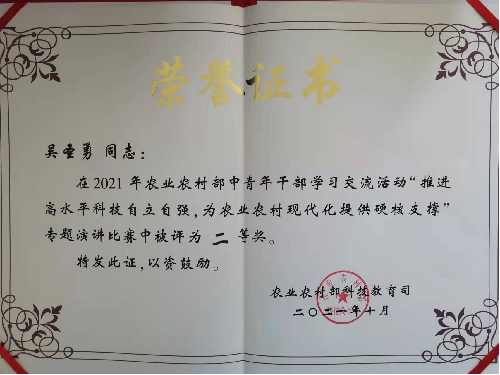 荣誉证书
吴圣勇 同志：
在2021年农业农村部中青年干部学习交流活动“推进
高水平科技自立自强，为农业农村现代化提供硬核支撑”
专题演讲比赛中被评为 二 等奖。
特发此证，以资鼓励。
农业农村部科技教育司
二〇二一年十月